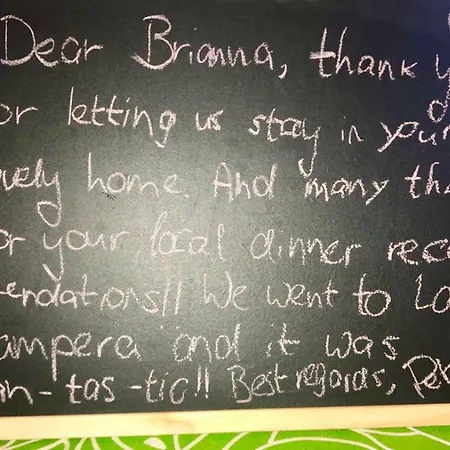 Dear Brianna, thank y
or letting us stay in your
ovely home. And many tha
or your local dinner reco
-endations!! We went to La
ampera and it was
an-tas-tic!! Best regards, Pe